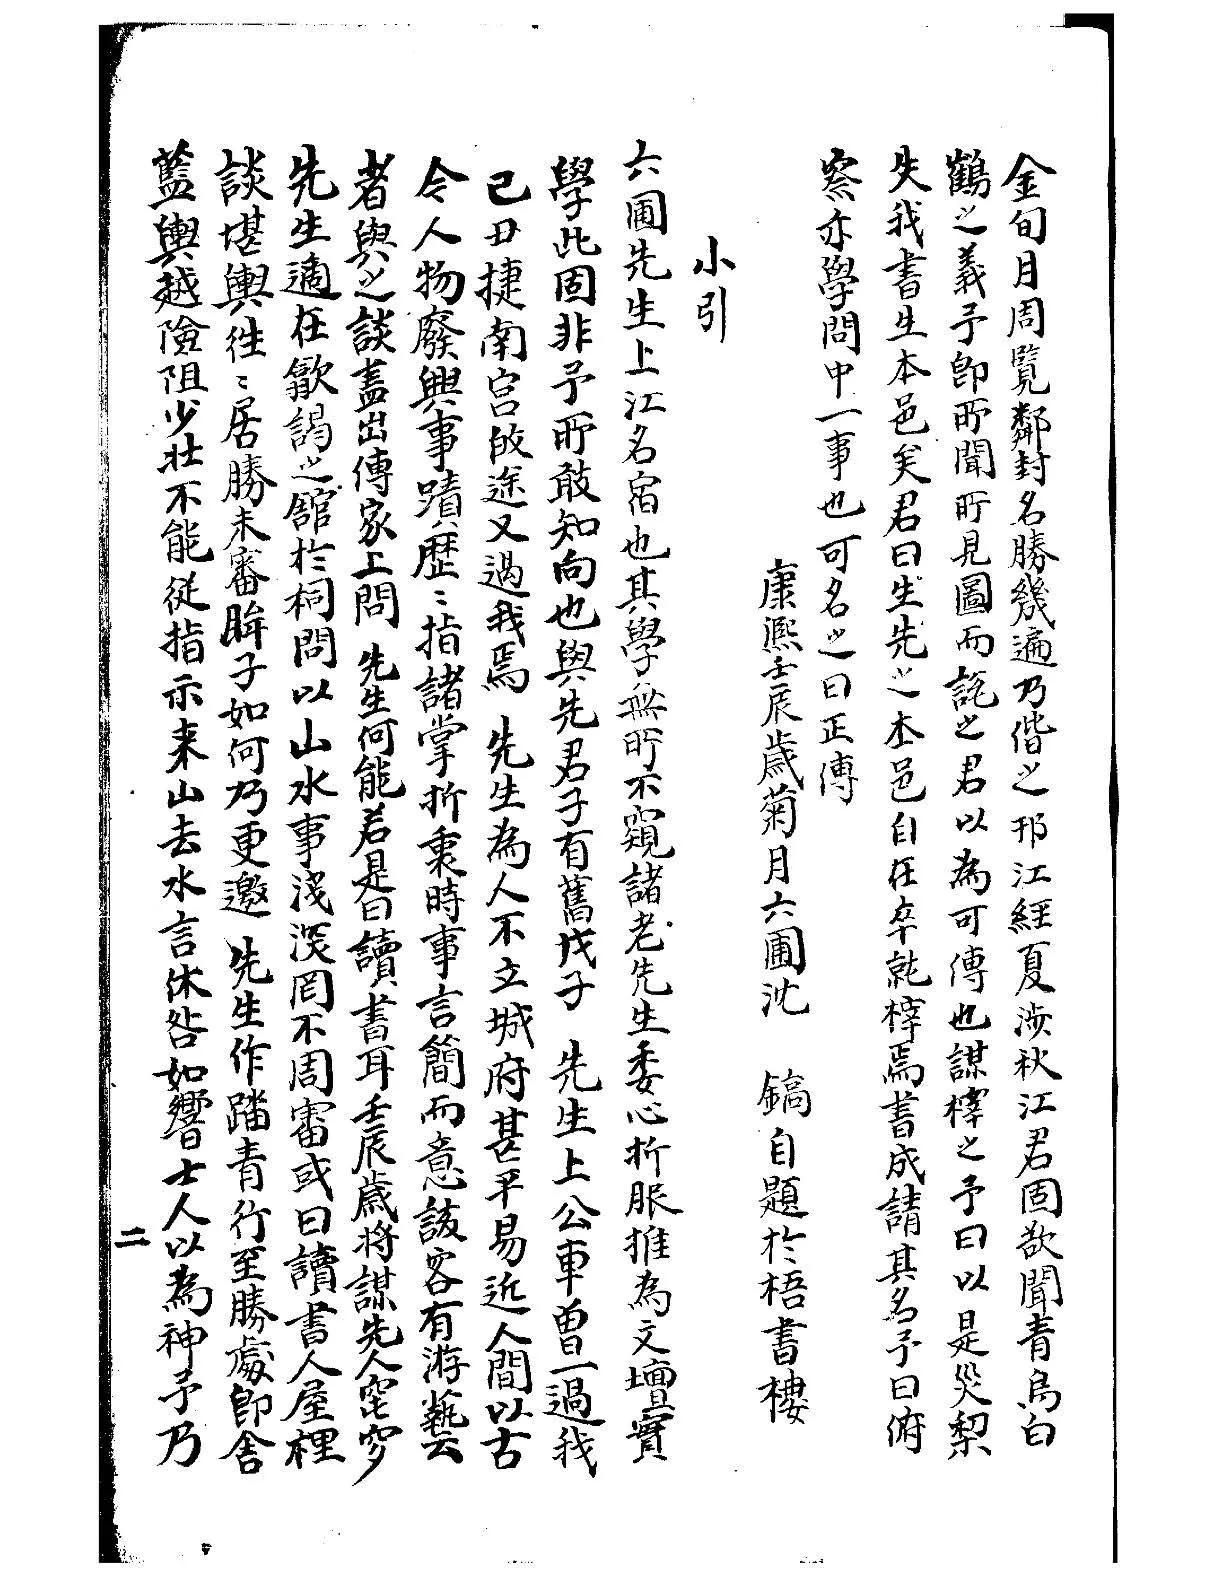 金旬月周覽鄰封名勝幾遍乃偕之邗江經夏涉秋江君固欲聞青烏白
鶴之義予即所聞所見圖而說之君以為可傳也謀梓之予曰以是災梨
失我書生本色矣君曰生先之本色自在卒就梓焉書成請其名予曰俯
察亦學問中一事也可名之曰正傳
康熙壬辰歲菊月六圃沈 鎬自題於梧書樓
小引
六圃先生上江名宿也其學無所不窺諸老先生委心折服推為文壇實
學此固非予所敢知向也與先君子有舊戊子 先生上公車曾一過我
己丑捷南宮改途又過我焉 先生為人不立城府甚平易近人間以古
今人物廢興事蹟歷〻指諸掌折衷時事言簡而意該客有游藝云
者與之談蓋出傳家上問 先生何能若是曰讀書耳壬辰歲將謀先人窀穸
先生適在歙謁之館於祠問以山水事淺深罔不周審或曰讀書人屋裡
談堪輿徃〻居勝未審眸子如何乃更邀 先生作踏青行至勝處即舍
藍輿越險阻少壯不能從指示来山去水言休咎如響士人以為神予乃
二